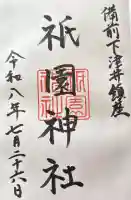 備前下津井鎮座
祇園神社
令和八年七月二十六日